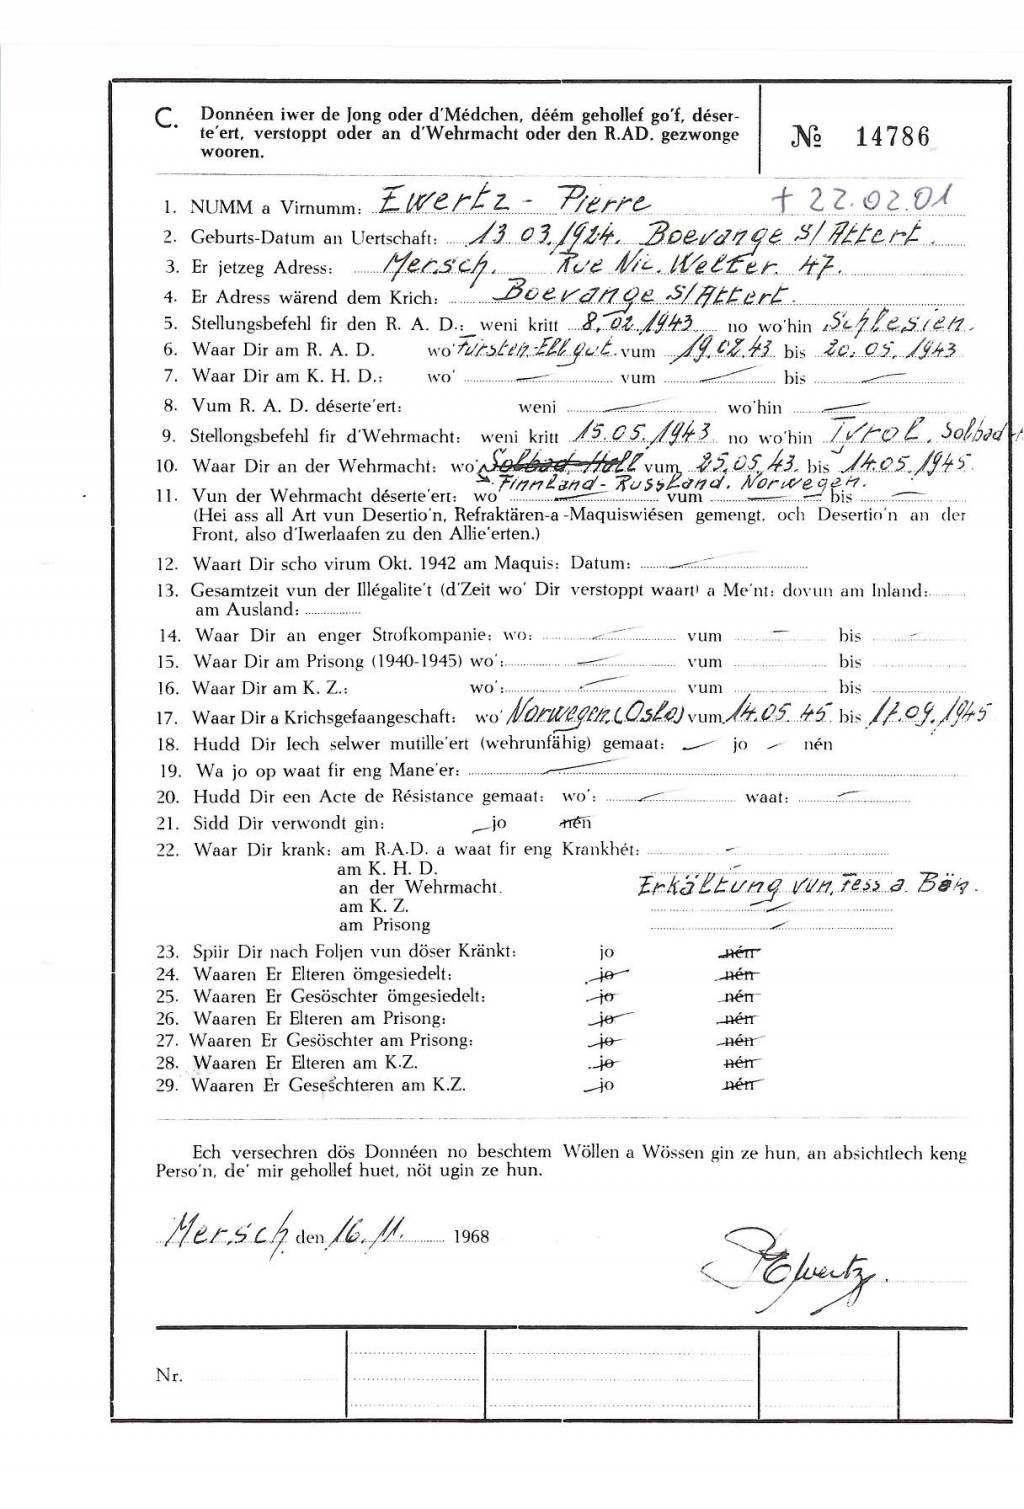 C. Donnéen iwer de Jong oder d'Médchen, déém gehollef go'f, déser-
te'ert, verstoppt oder an d'Wehrmacht oder den R.AD. gezwonge
wooren.
№ 14786
1. NUMM a Virnumm: Ewertz - Pierre † 22.02.01
2. Geburts-Datum an Uertschaft: 13.03.1924. Boevange s/Attert.
3. Er jetzeg Adress: Mersch. Rue Nic. Welter. 47.
4. Er Adress wärend dem Krich: Boevange s/Attert.
5. Stellungsbefehl fir den R. A. D.: weni kritt 8.02.1943 no wo'hin Schlesien.
6. Waar Dir am R. A. D. wo' Fürsten-Ellgut. vum 19.02.43 bis 20.05.1943
7. Waar Dir am K. H. D.: wo' — vum — bis —
8. Vum R. A. D. déserte'ert: weni — wo'hin —
9. Stellongsbefehl fir d'Wehrmacht: weni kritt 15.05.1943 no wo'hin Tyrol. Solbad-H
10. Waar Dir an der Wehrmacht: wo' Solbad-Hall vum 25.05.43. bis 14.05.1945
Finnland-Russland. Norwegen.
11. Vun der Wehrmacht déserte'ert: wo' — vum — bis —
(Hei ass all Art vun Desertio'n, Refraktären-a-Maquiswiésen gemengt, och Desertio'n an der
Front, also d'Iwerlaafen zu den Allie'erten.)
12. Waart Dir scho virum Okt. 1942 am Maquis: Datum: —
13. Gesamtzeit vun der Illégalite't (d'Zeit wo' Dir verstoppt waart) a Me'nt: dovun am Inland:
am Ausland:
14. Waar Dir an enger Strofkompanie: wo: — vum — bis —
15. Waar Dir am Prisong (1940-1945) wo': — vum bis
16. Waar Dir am K. Z.: wo': — vum bis
17. Waar Dir a Krichsgefaangeschaft: wo' Norwegen.(Oslo) vum 14.05.45 bis 17.09.1945
18. Hudd Dir Iech selwer mutille'ert (wehrunfähig) gemaat: — jo — nén
19. Wa jo op waat fir eng Mane'er: —
20. Hudd Dir een Acte de Résistance gemaat: wo': — waat: —
21. Sidd Dir verwondt gin: jo nén
22. Waar Dir krank: am R.A.D. a waat fir eng Krankhét: —
am K. H. D. —
an der Wehrmacht. Erkältung vun Fess a. Bén.
am K. Z. —
am Prisong —
23. Spiir Dir nach Foljen vun döser Kränkt: jo nén
24. Waaren Er Elteren ömgesiedelt: jo nén
25. Waaren Er Gesöschter ömgesiedelt: jo nén
26. Waaren Er Elteren am Prisong: jo nén
27. Waaren Er Gesöschter am Prisong: jo nén
28. Waaren Er Elteren am K.Z. jo nén
29. Waaren Er Geseschteren am K.Z. jo nén
Ech versechren dös Donnéen no beschtem Wöllen a Wössen gin ze hun, an absichtlech keng
Perso'n, de' mir gehollef huet, nöt ugin ze hun.
Mersch, den 16.11. 1968
P Ewertz.
Nr.